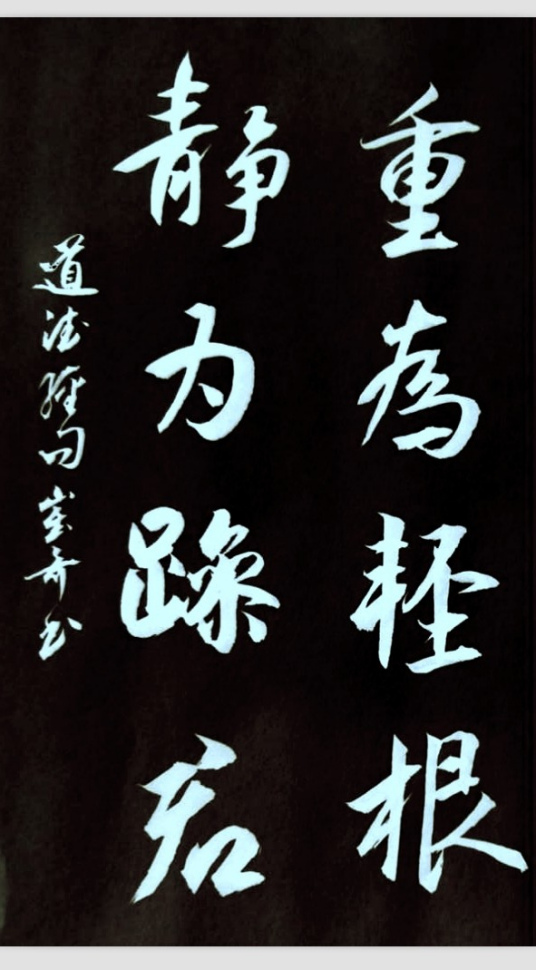 重為輕根
静为躁君
道德經句